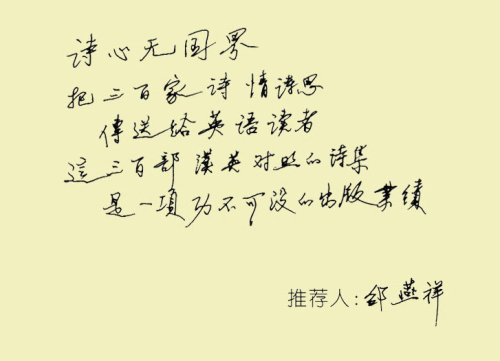 诗心无国界
把三百家诗情诗思
傳送给英语读者
這三百部漢英对照的诗集
是一項功不可没的出版業績
推荐人:邵燕祥